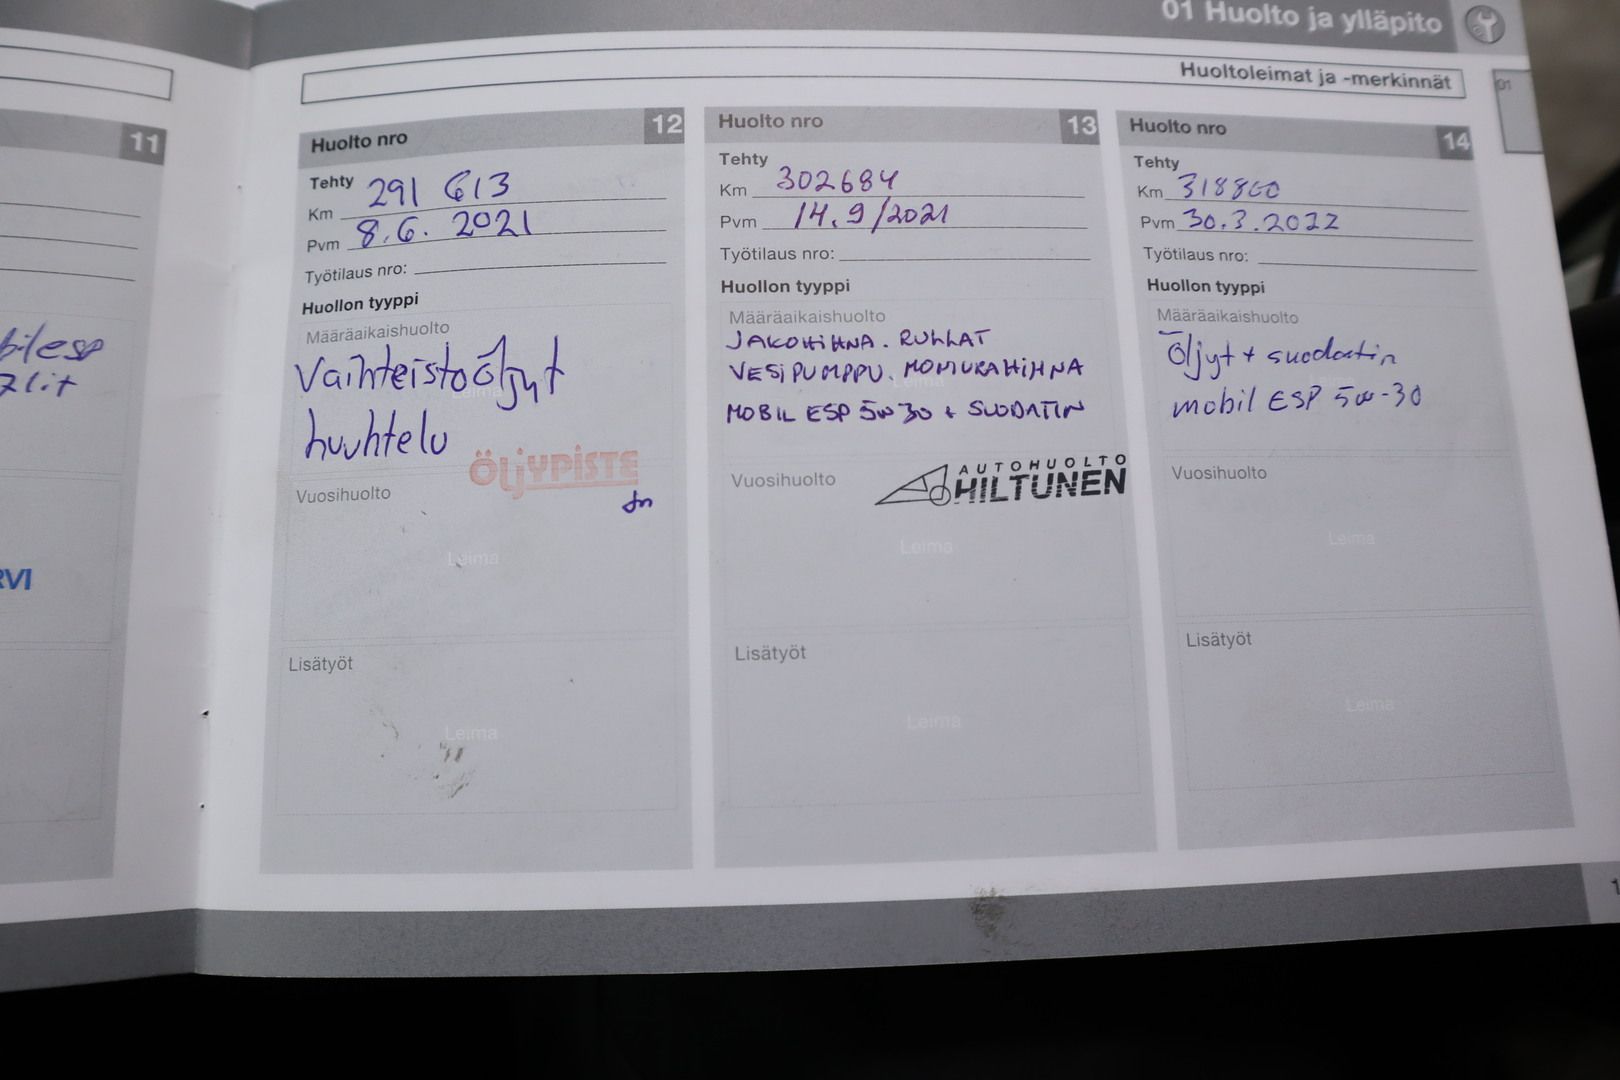 01 Huolto ja ylläpito
Huoltoleimat ja -merkinnät
01
11
RVI
Huolto nro 12
Tehty
Km 291 613
Pvm 8.6. 2021
Työtilaus nro:
Huollon tyyppi
Määräaikaishuolto
Vaihteistoöljyt
huuhtelu
Leima
ÖljYPiSTE
Vuosihuolto
Leima
Lisätyöt
Leima
Huolto nro 13
Tehty
Km 302684
Pvm 14.9/2021
Työtilaus nro:
Huollon tyyppi
Määräaikaishuolto
JAKOHiHNA. RULLAT
VESiPUMPPU. MONIURAHiHNA
Leima
MOBIL ESP 5W30 + SUODATIN
AUTOHUOLTO
HILTUNEN
Vuosihuolto
Leima
Lisätyöt
Leima
Huolto nro 14
Tehty
Km 318860
Pvm 30.3.2022
Työtilaus nro:
Huollon tyyppi
Määräaikaishuolto
Öljyt + suodatin
mobil ESP 5w-30
Vuosihuolto
Leima
Lisätyöt
Leima